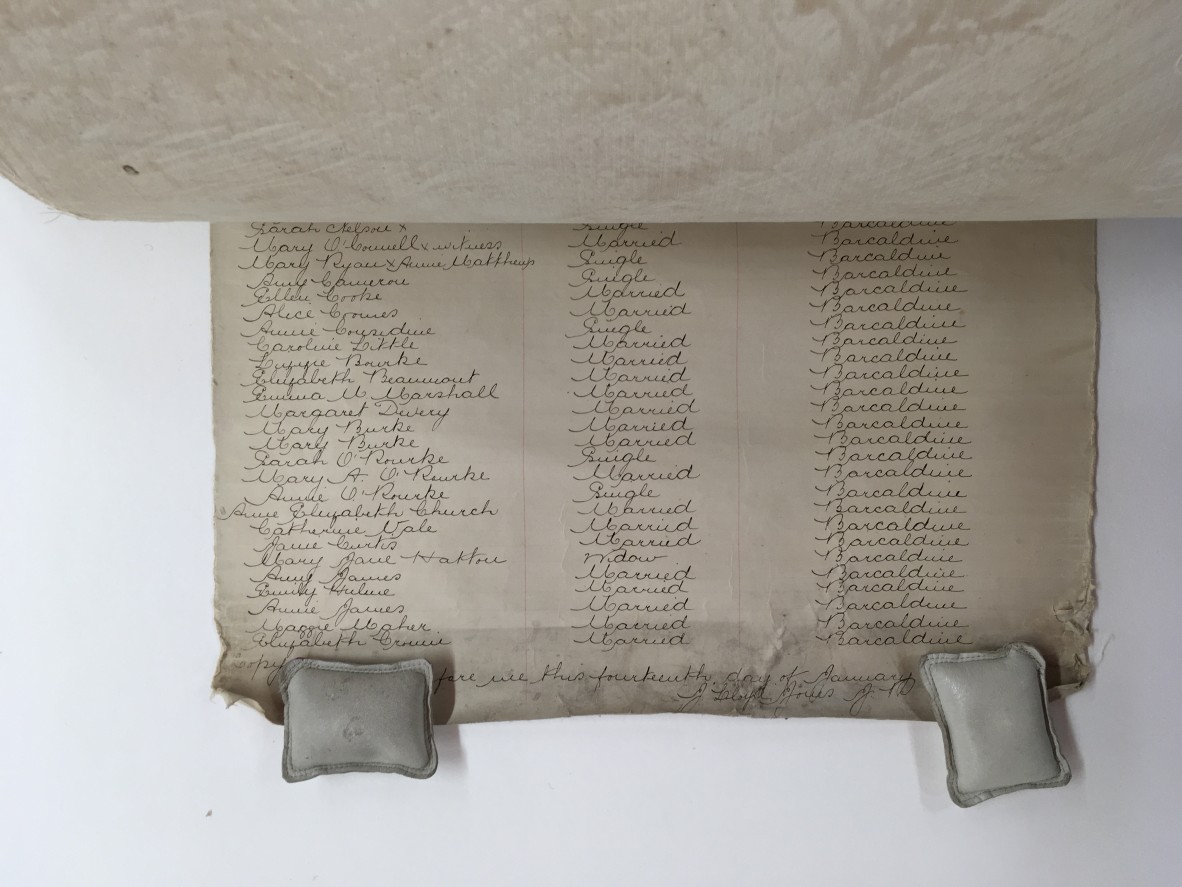 Sarah Nelson x Single Barcaldine
Mary O'Connell x witness Married Barcaldine
Mary Ryan x Annie Matthews Single Barcaldine
Amy Cameron Single Barcaldine
Ellen Cooke Married Barcaldine
Alice Crones Married Barcaldine
Annie Considine Single Barcaldine
Caroline Little Married Barcaldine
Lizzie Bourke Married Barcaldine
Elizabeth Beaumont Married Barcaldine
Emma M Marshall Married Barcaldine
Margaret Married Barcaldine
Mary Burke Married Barcaldine
Mary Burke Married Barcaldine
Sarah O'Rourke Single Barcaldine
Mary A. O'Rourke Married Barcaldine
Annie O'Rourke Single Barcaldine
Anne Elizabeth Church Married Barcaldine
Catherine Vale Married Barcaldine
Jane Curtis Married Barcaldine
Mary Jane Hatton Widow Barcaldine
Amy James Married Barcaldine
Emily Hulme Married Barcaldine
Annie James Married Barcaldine
Maggie Maher Married Barcaldine
Elizabeth Cronin Married Barcaldine
Copy fore me this fourteenth day of January
J. Lloyd Jones J. P.